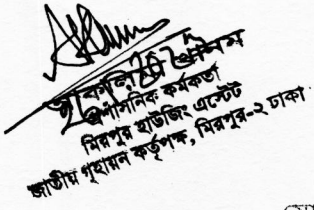 প্রশাসনিক কর্মকর্তা
মিরপুর হাউজিং এস্টেট
জাতীয় গৃহায়ন কর্তৃপক্ষ, মিরপুর-২ ঢাকা